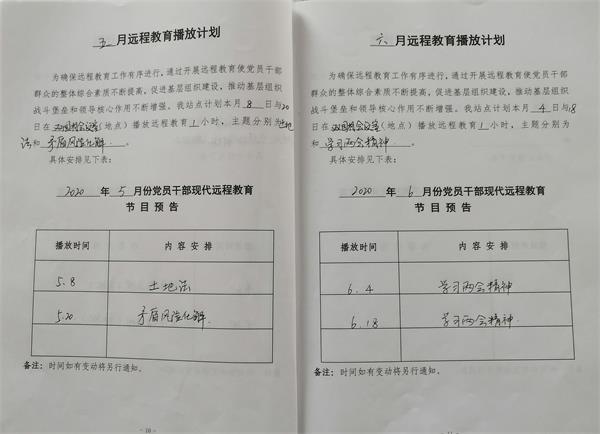 五 月远程教育播放计划
为确保远程教育工作有序进行，通过开展远程教育使党员干部
群众的整体综合素质不断提高，促进基层组织建设，推动基层组织
战斗堡垒和领导核心作用不断增强。我站点计划本月 8 日与20
日在 会议室（地点）播放远程教育 1 小时，主题分别为土地
法和 矛盾风险化解 。
具体安排见下表：
2020 年 5 月份党员干部现代远程教育
节 目 预 告
播放时间 内 容 安 排
5.8 土地法
5.20 矛盾风险化解
备注：时间如有变动将另行通知。
- 10 -
六 月远程教育播放计划
为确保远程教育工作有序进行，通过开展远程教育使党员干部
群众的整体综合素质不断提高，促进基层组织建设，推动基层组织
战斗堡垒和领导核心作用不断增强。我站点计划本月 4 日与18
日在 会议室（地点）播放远程教育 1 小时，主题分别为
和 学习两会精神 。
具体安排见下表：
2020 年 6 月份党员干部现代远程教育
节 目 预 告
播放时间 内 容 安 排
6.4 学习两会精神
6.18 学习两会精神
备注：时间如有变动将另行通知。